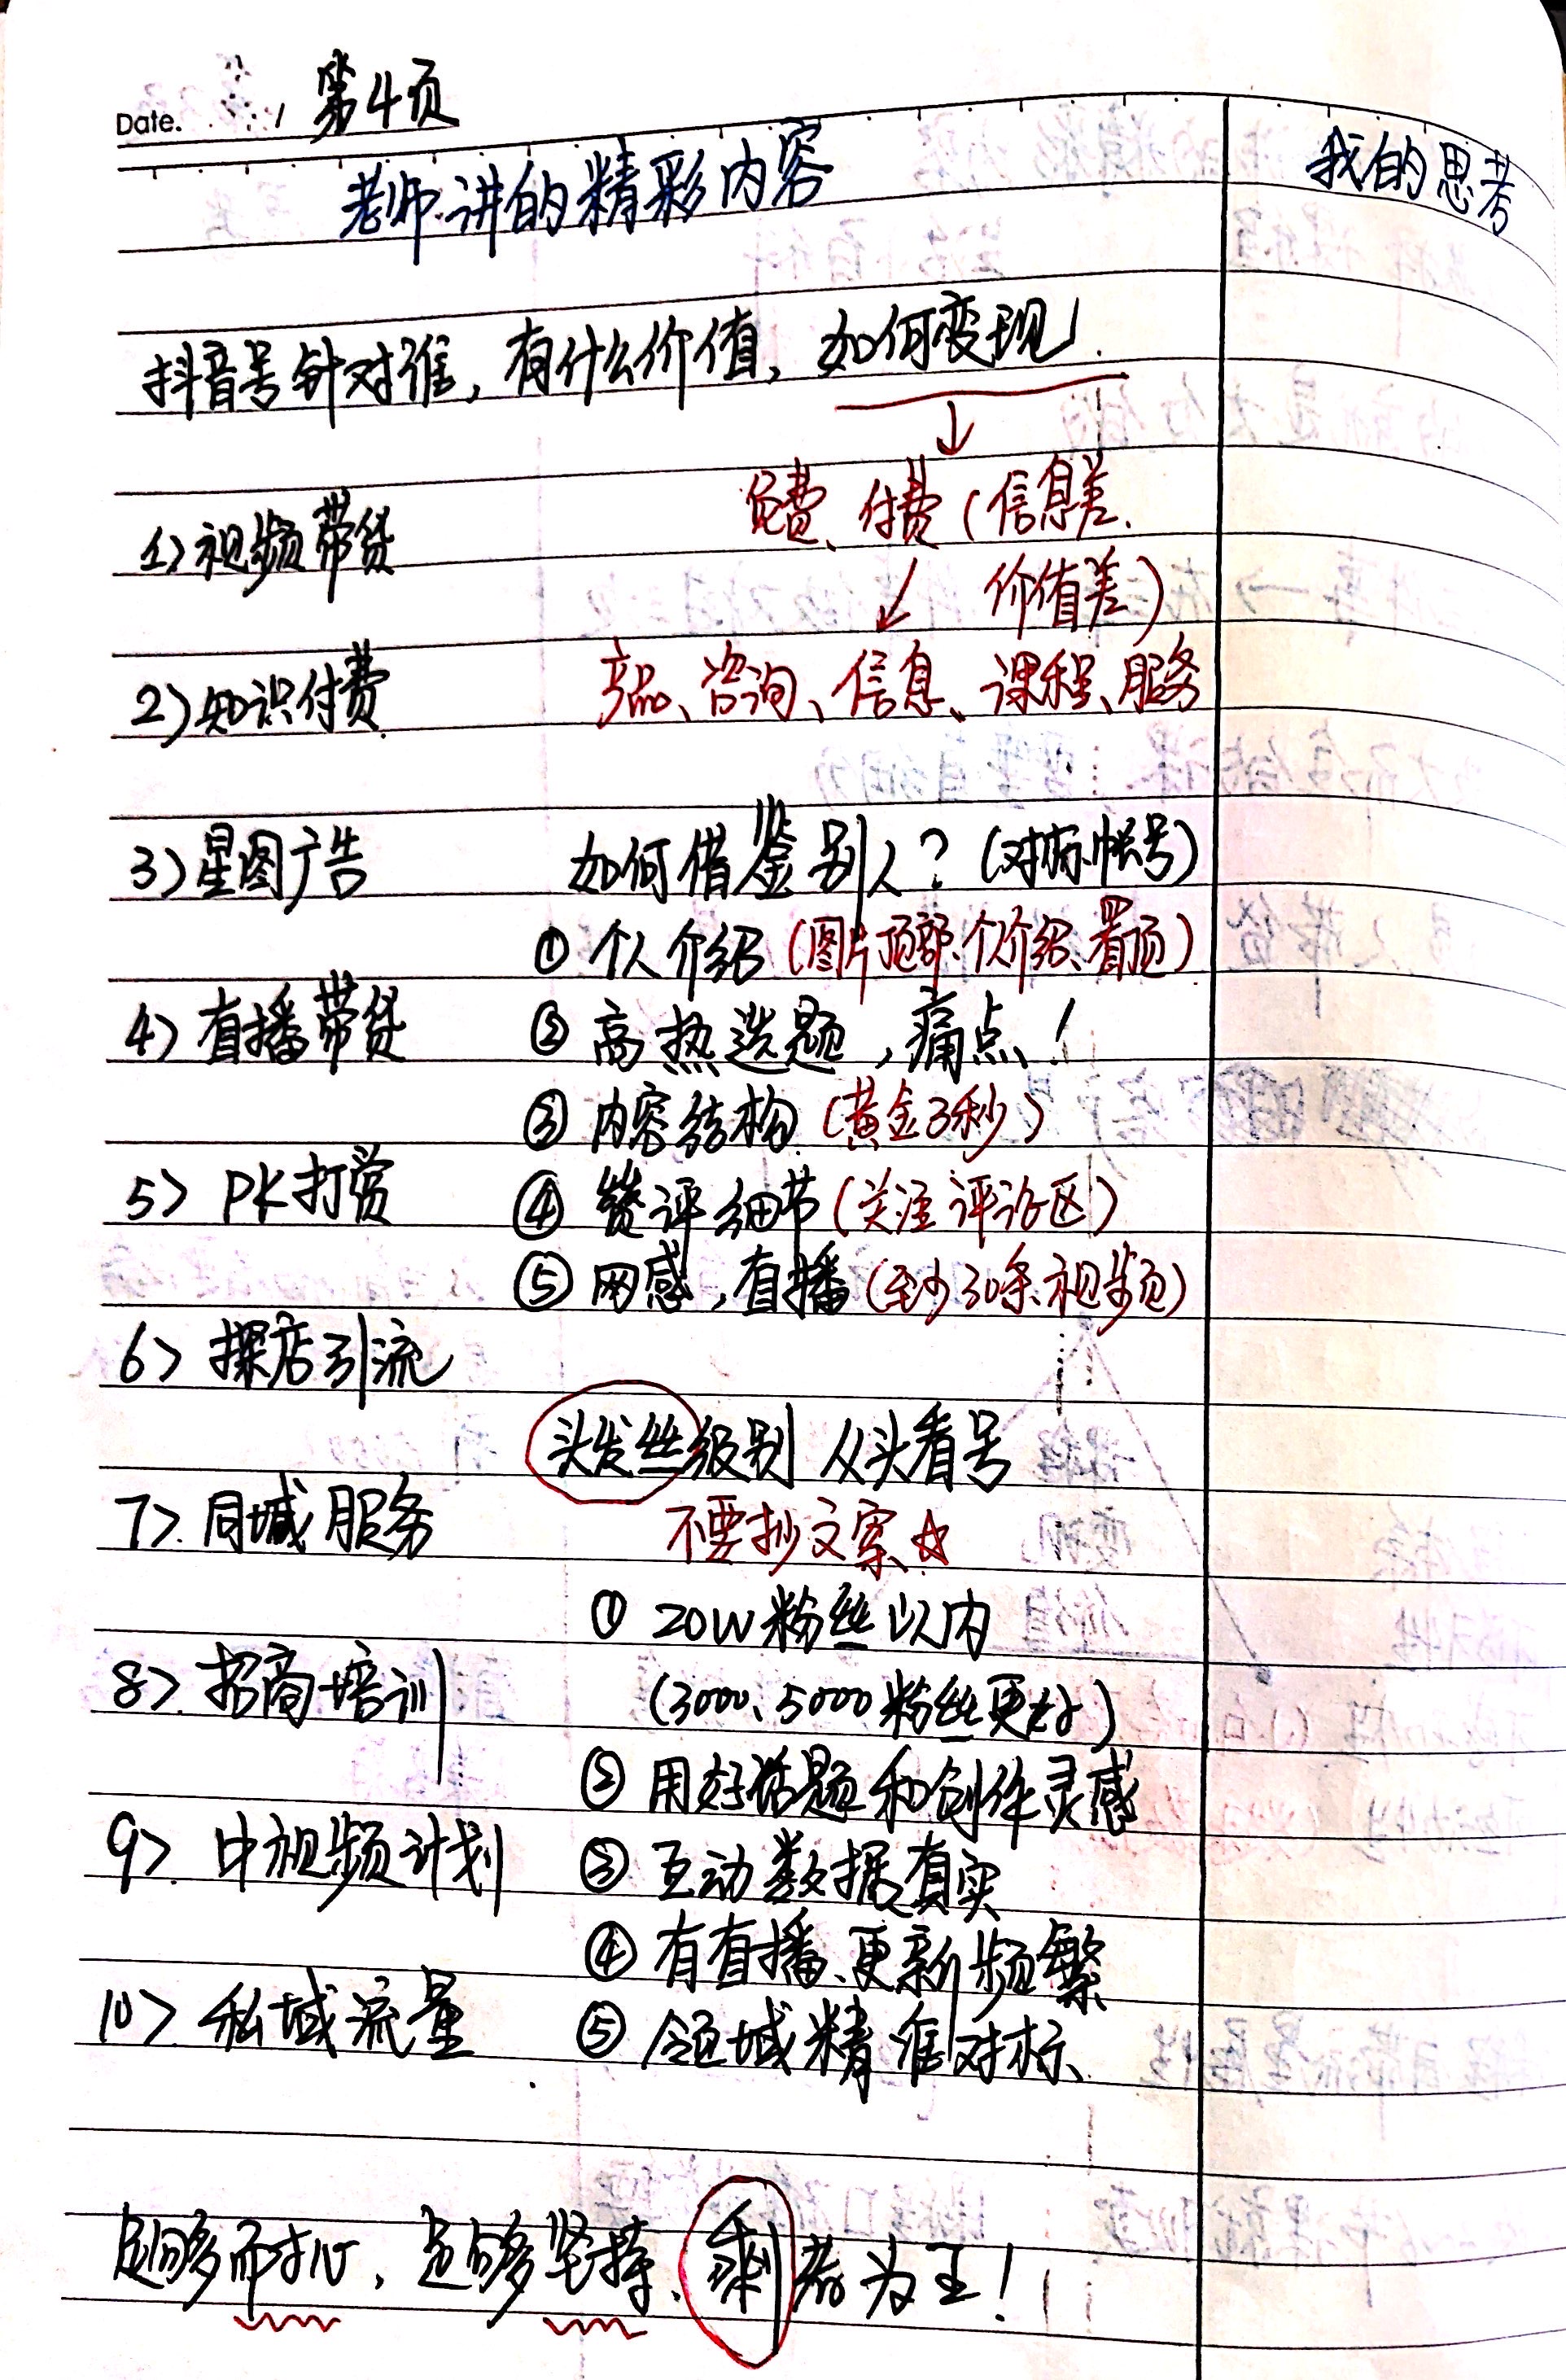 Date. 第4页
老师讲的精彩内容
我的思考
抖音号针对谁，有什么价值，如何变现
↓
免费、付费（信息差、
价值差）
↙
产品、咨询、信息、课程、服务
1）视频带货
2）知识付费
3）星图广告
4）直播带货
5）PK打赏
6）探店引流
7）同城服务
8）招商培训
9）中视频计划
10）私域流量
如何借鉴别人？（对标帐号）
① 个人介绍（图片顶部、个介绍、置顶）
② 高热选题，痛点！
③ 内容结构（黄金3秒）
④ 赞评细节（关注评论区）
⑤ 网感，直播（至少30条视频）
头发丝级别 从头看号
不要抄文案☆
① 20W粉丝以内
（3000、5000粉丝更好）
② 用好话题和创作灵感
③ 互动数据真实
④ 有直播、更新频繁
⑤ 领域精准对标、
足够耐心，足够坚持、剩者为王！